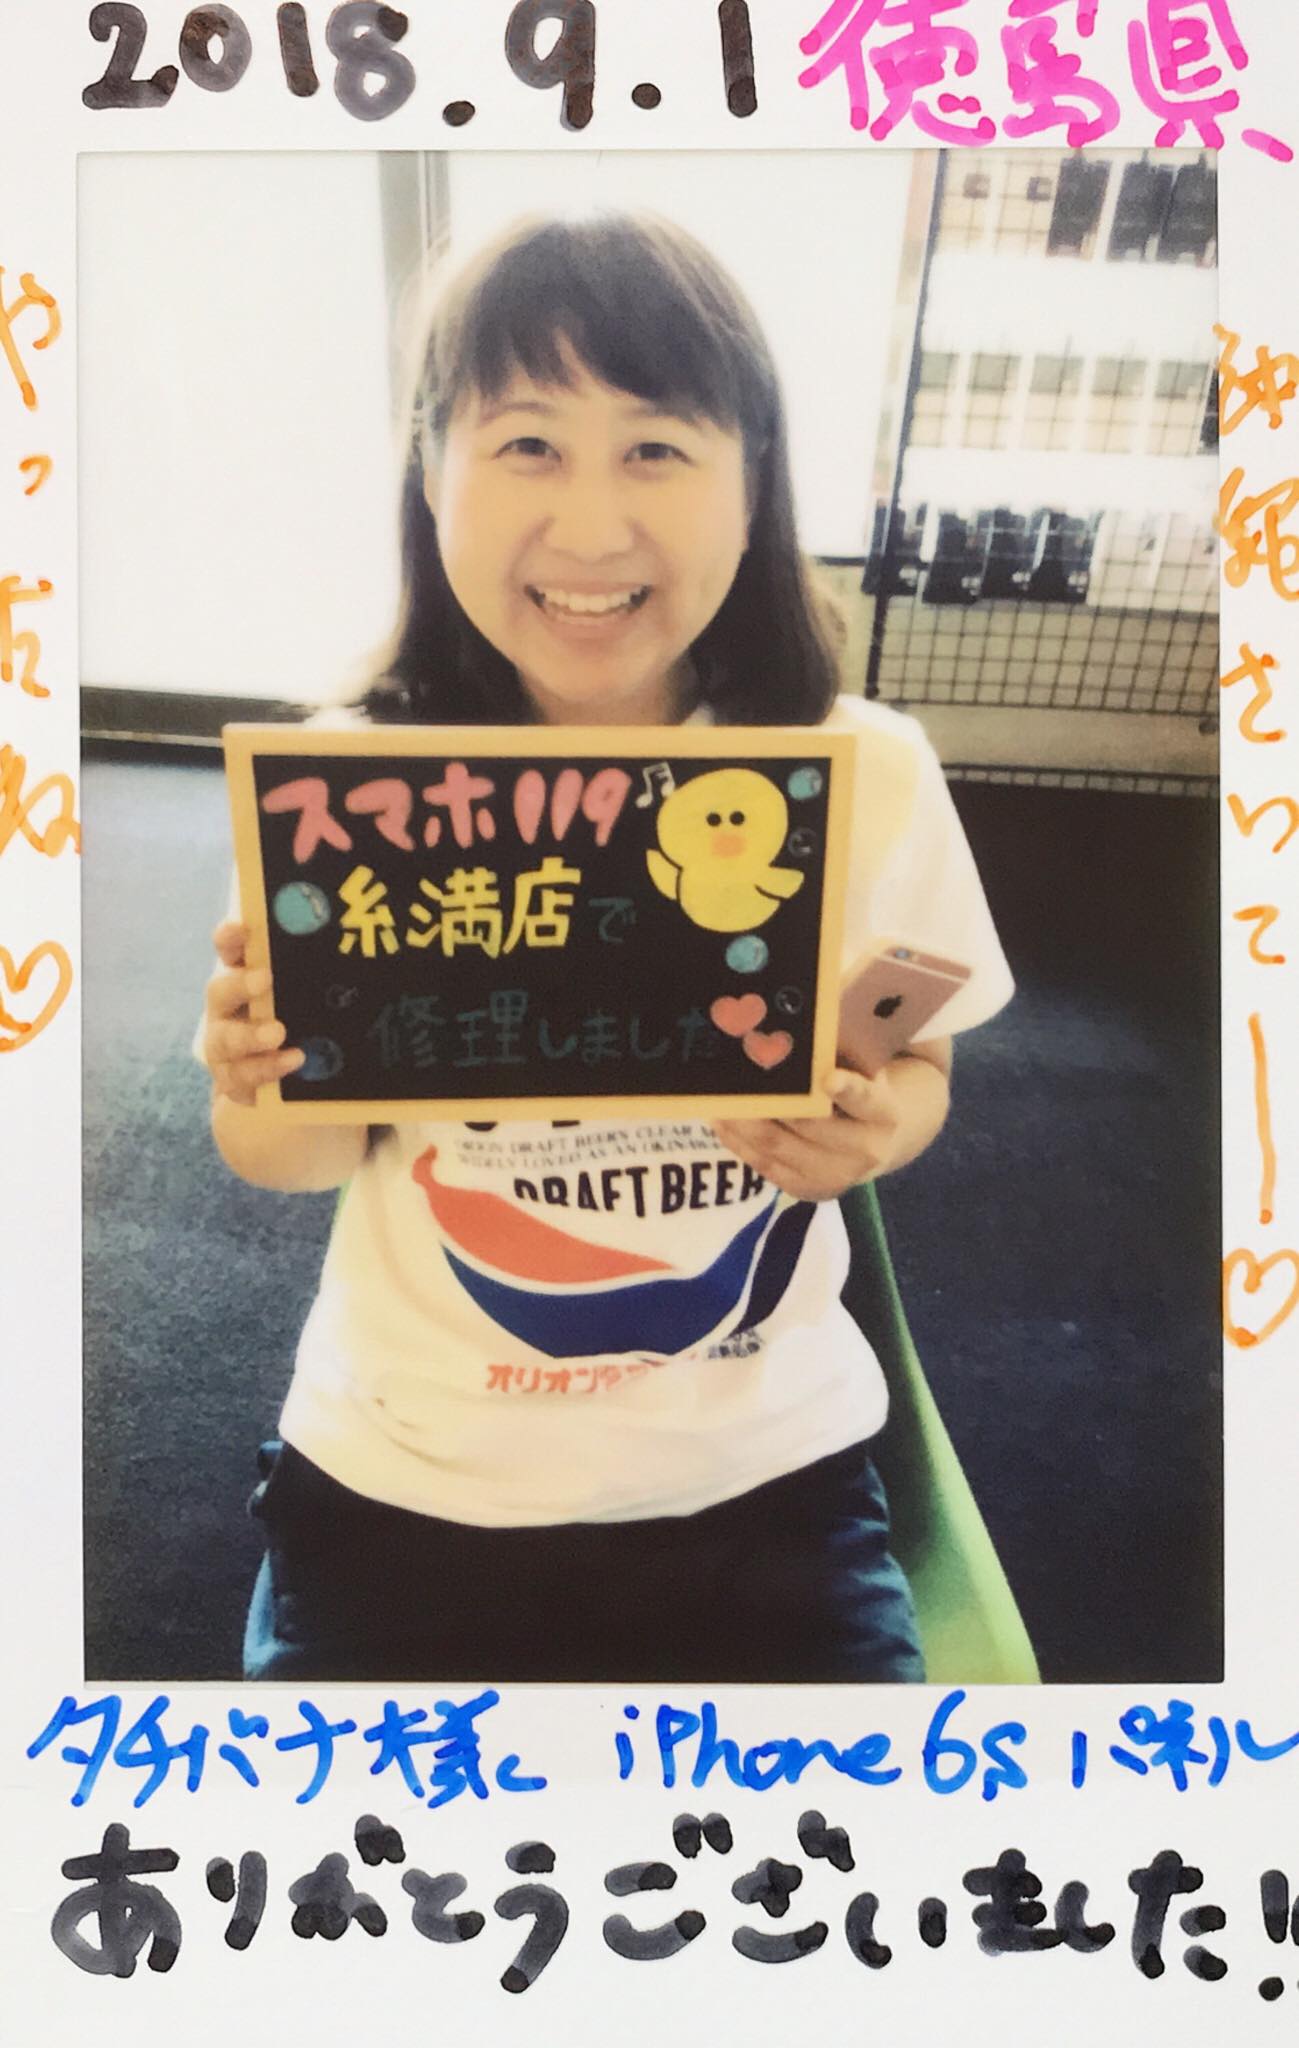 2018.9.1 徳島県
やったね
沖縄さいてー
スマホ119
糸満店で
修理しました
DRAFT BEER
タチバナ様 iPhone6s パネル
ありがとうございました!!